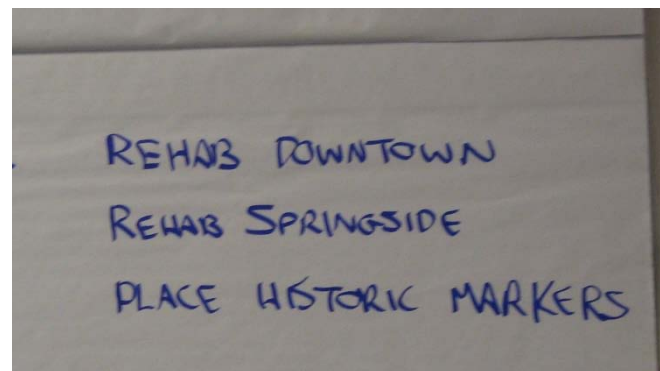 REHAB DOWNTOWN
REHAB SPRINGSIDE
PLACE HISTORIC MARKERS